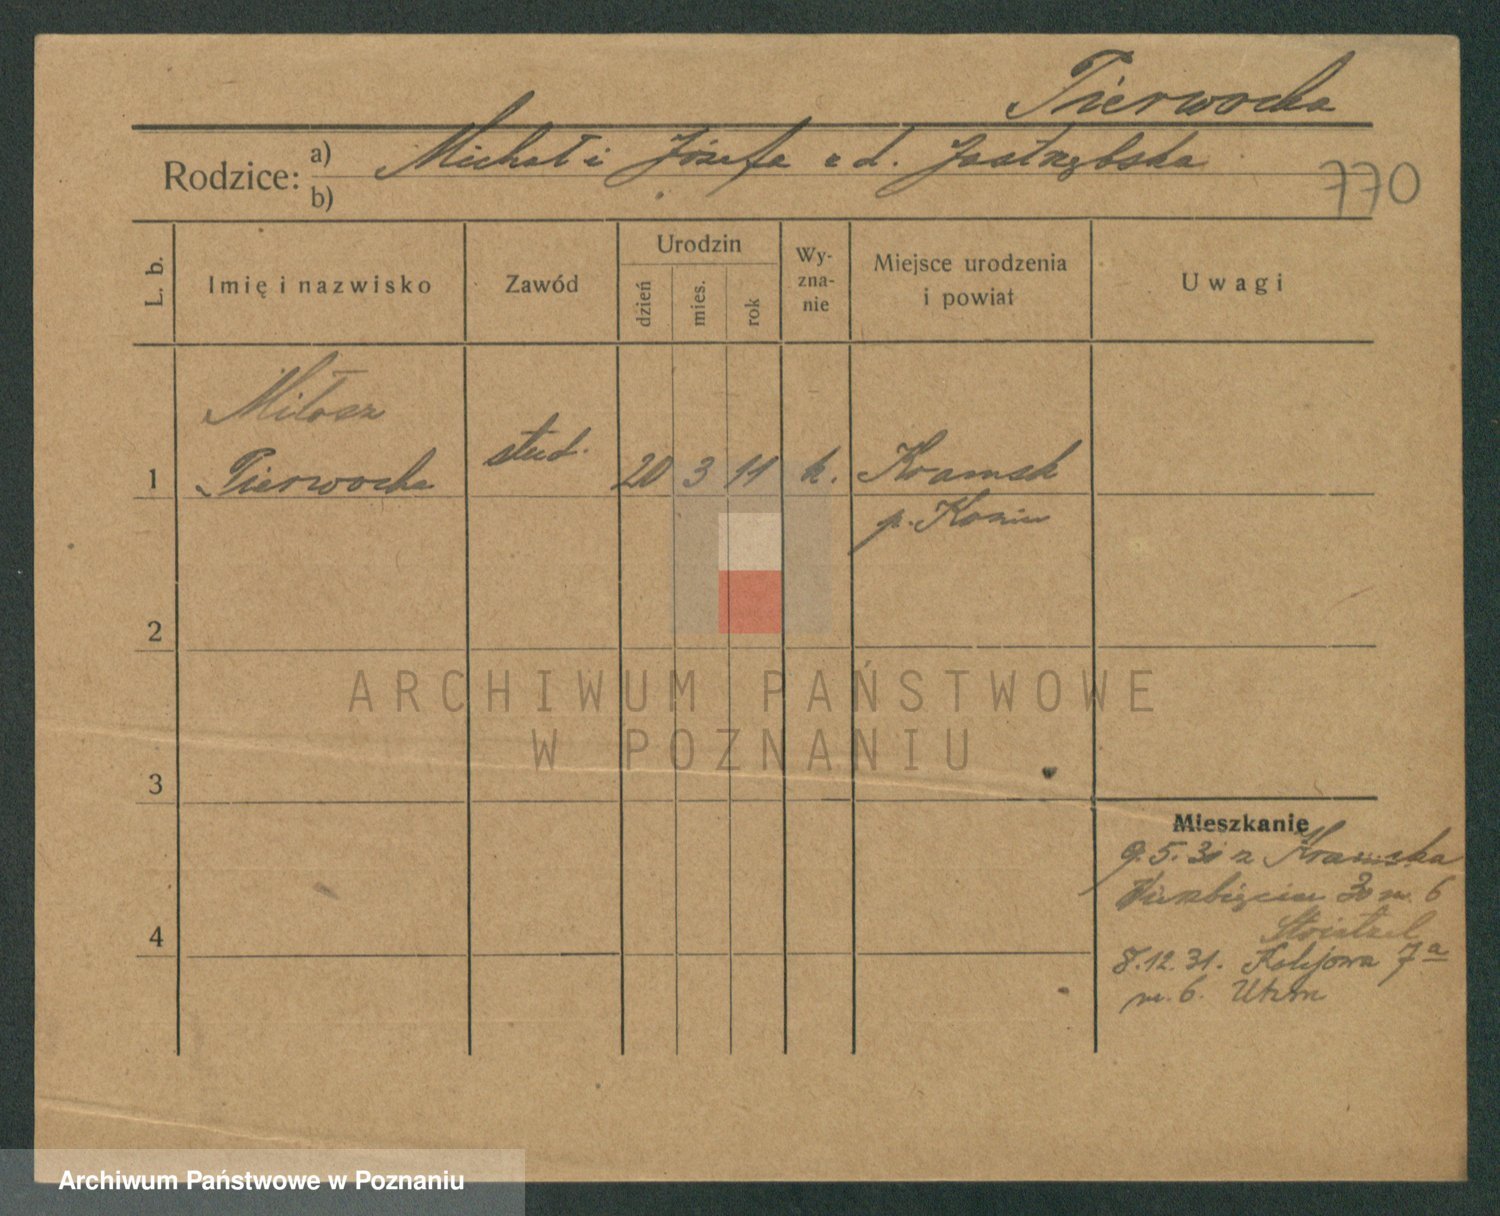 Pierwocha
Rodzice: a) Michał i Józefa z d. Jastrzębska
b)
770
L. b.
Imię i nazwisko
Zawód
Urodzin
dzień
mies.
rok
Wy-
zna-
nie
Miejsce urodzenia
i powiat
Uwagi
Miłosz
1 Pierwocha stud. 20 3 11 k. Kramsk
p. Konin
2
ARCHIWUM PAŃSTWOWE
W POZNANIU
3
Mieszkanie
9.5.30 z Kramska
Wierzbięcice 30 m. 6
4
8.12.31. Kolejowa 7a
m. 6.
Archiwum Państwowe w Poznaniu